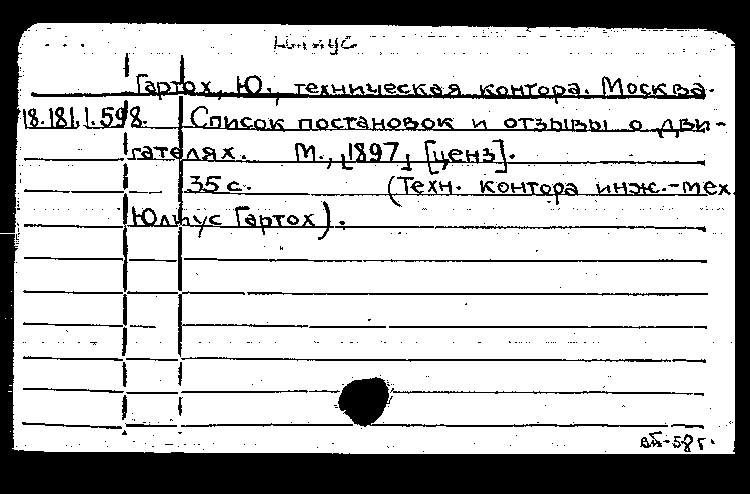 Гартох, Ю., техническая контора. Москва.
18.181.1.598. Список постановок и отзывы о дви-
гателях. М., [1897] [ценз].
35 с. (Техн. контора инж.-мех.
Юлиус Гартох).
вб-58 г.